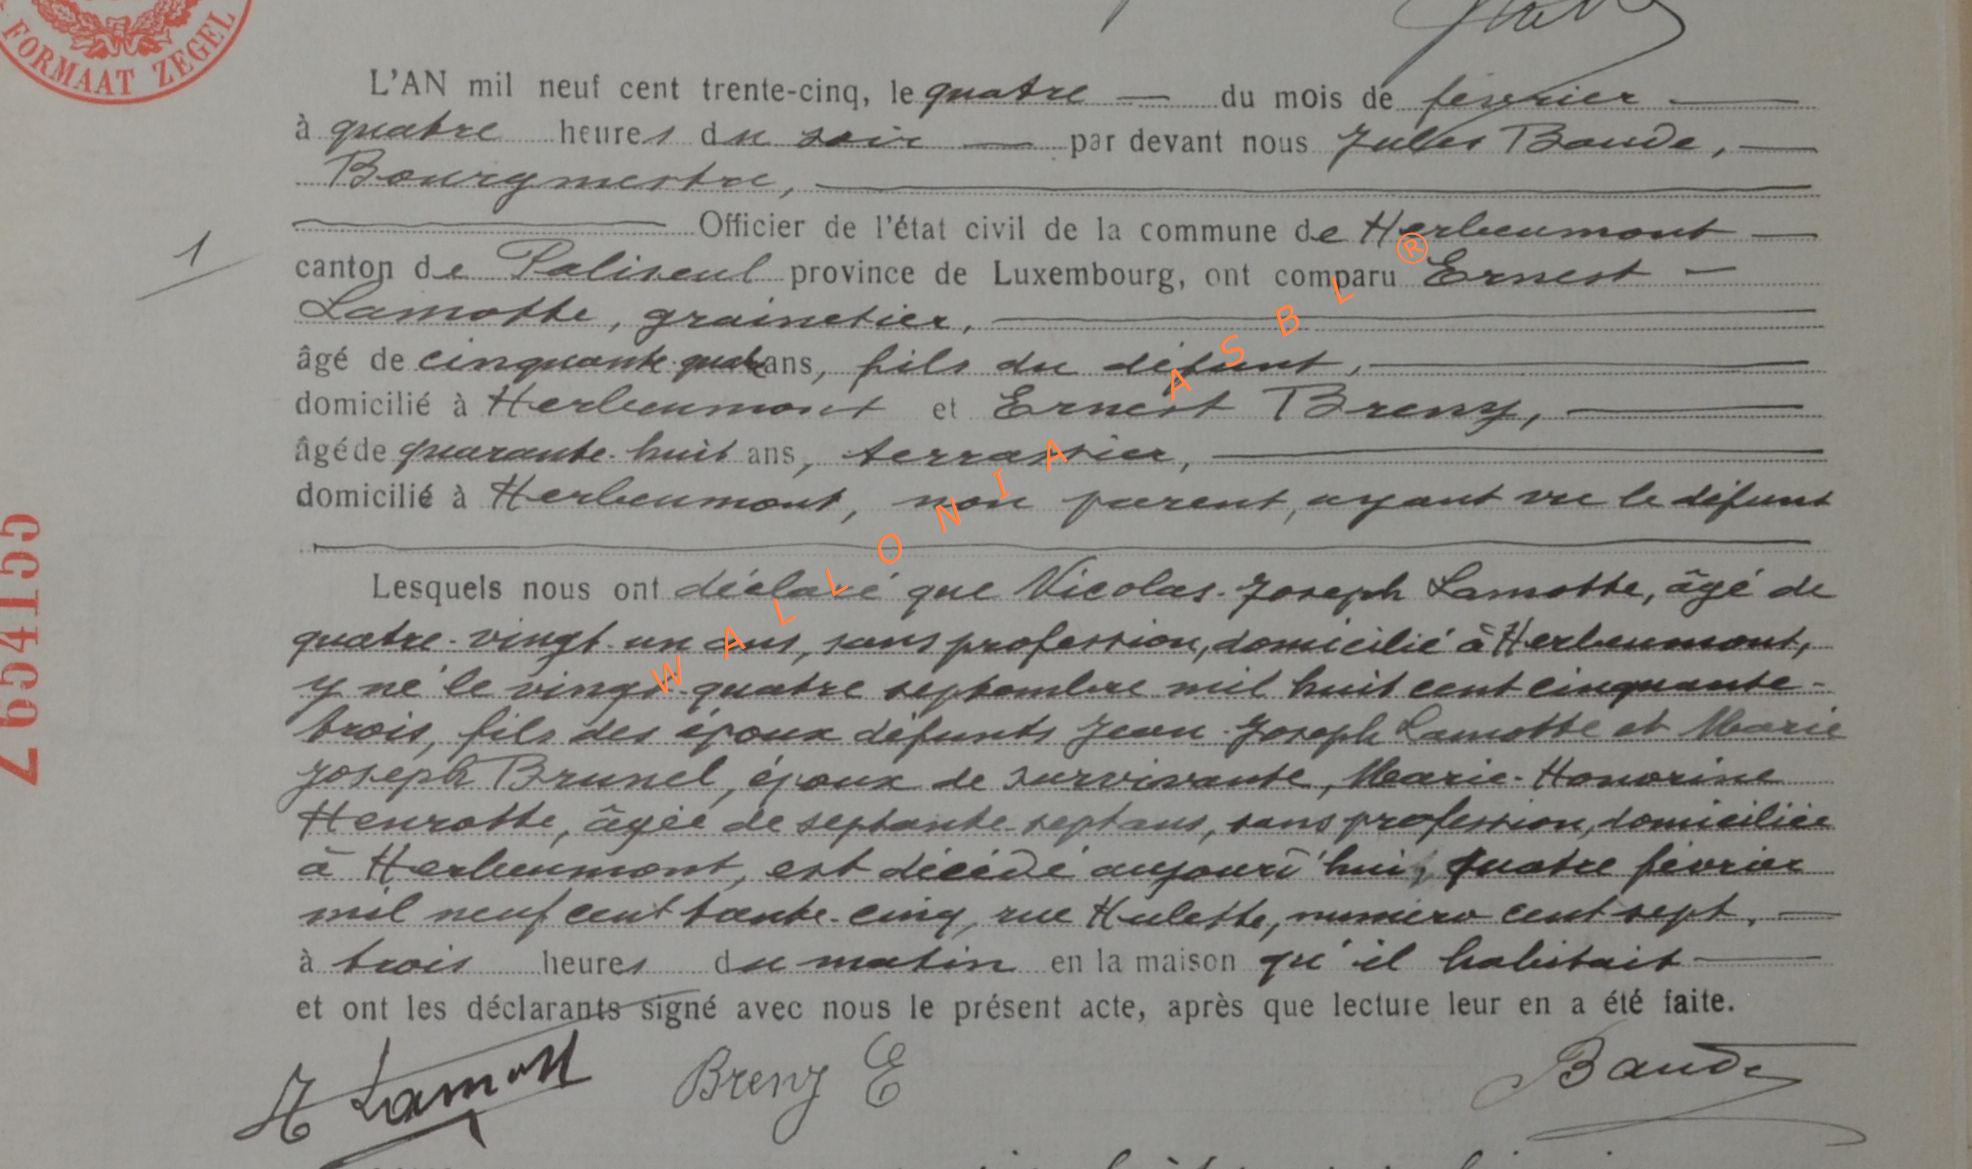 FORMAAT ZEGEL
L'AN mil neuf cent trente-cinq, le quatre — du mois de février —
à quatre heures du soir — par devant nous Jules Baude, —
Bourgmestre, —
Officier de l'état civil de la commune de Herbeumont —
canton de Paliseul province de Luxembourg, ont comparu Ernest —
1
Lamotte, grainetier, —
âgé de cinquante-quatre ans, fils du défunt, —
domicilié à Herbeumont et Ernest Breny, —
âgé de quarante-huit ans, terrassier, —
domicilié à Herbeumont, non parent, ayant vu le défunt
Lesquels nous ont déclaré que Nicolas-Joseph Lamotte, âgé de
quatre-vingt-un ans, sans profession, domicilié à Herbeumont,
y né le vingt-quatre septembre mil huit cent cinquante-
trois, fils des époux défunts Jean-Joseph Lamotte et Marie
Joseph Brunel, époux de survivante, Marie-Honorine
Henrotte, âgée de septante-sept ans, sans profession, domiciliée
à Herbeumont, est décédé aujourd'hui, quatre février
mil neuf cent trente-cinq, rue Hulette, numéro cent sept, —
à trois heures du matin en la maison qu'il habitait —
et ont les déclarants signé avec nous le présent acte, après que lecture leur en a été faite.
Lamott
Breny E
Baude
7654155
WALLONIA ASBL ®